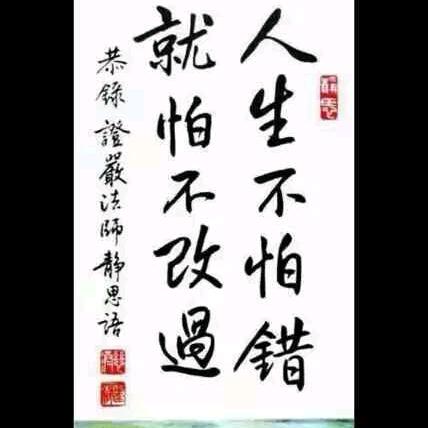 人生不怕錯
就怕不改過
恭錄 證嚴法師靜思語